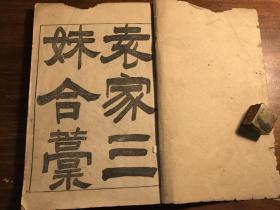 袁家三
妹合藁